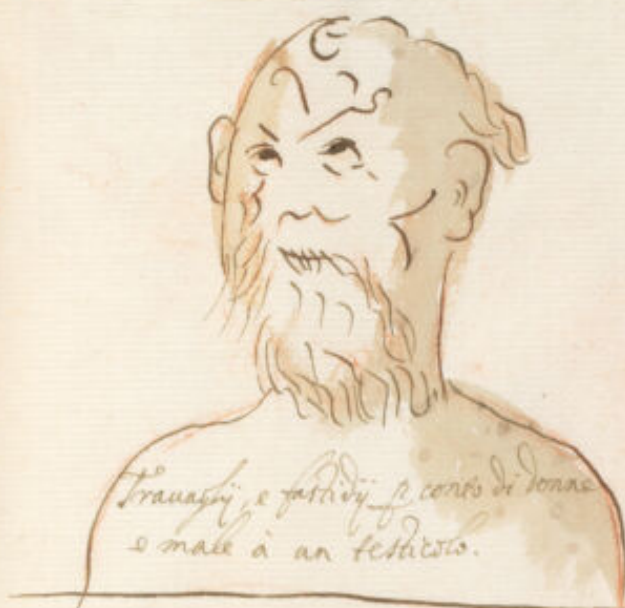 Trauaglij, e fastidij p conto di donne
e male à un testicolo.